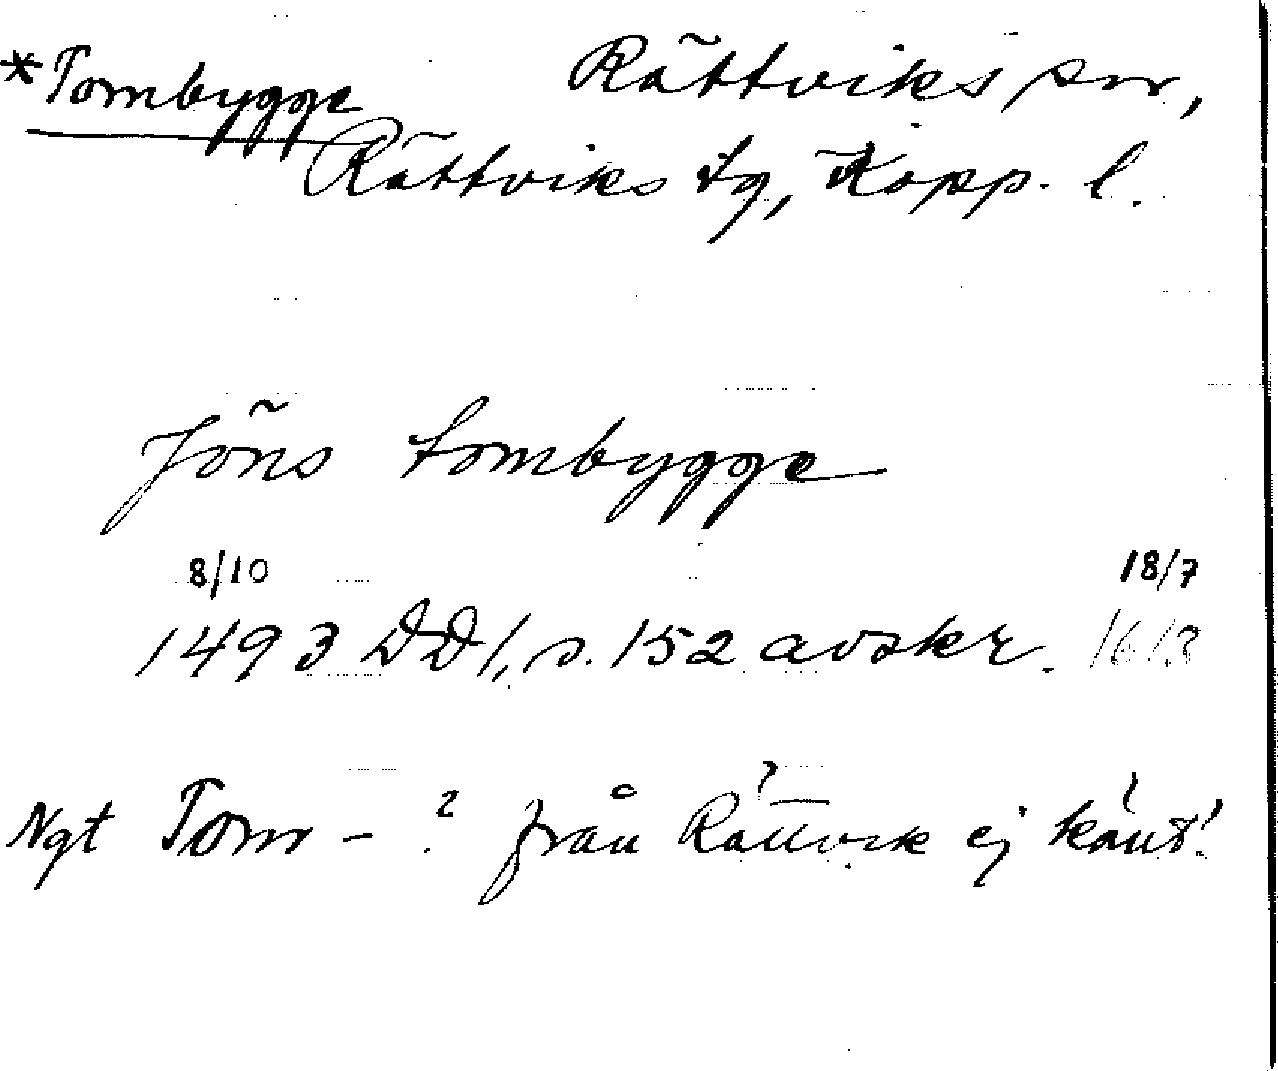 *Tombygge Rättviks sn,
Rättviks tg, Kopp. l.
Jöns tombygge
8/10 18/7
1493 DD 1, s. 152 avskr. 1613
Ngt Tom - ? från Rättvik ej känt!